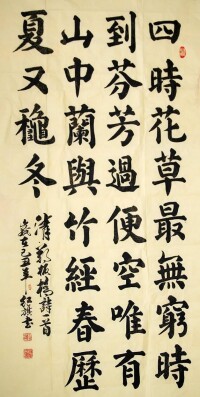 四時花草最無窮時
到芬芳過便空唯有
山中蘭與竹經春歷
夏又穐冬
清鄭板橋詩一首
歲在己丑年紅旗書